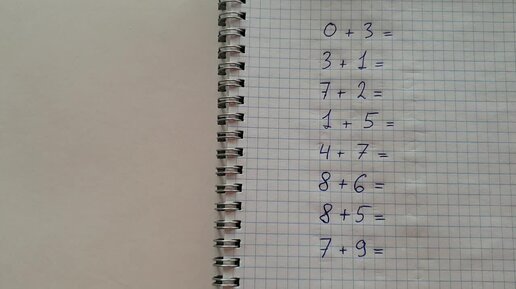 0 + 3 =
3 + 1 =
7 + 2 =
1 + 5 =
4 + 7 =
8 + 6 =
8 + 5 =
7 + 9 =